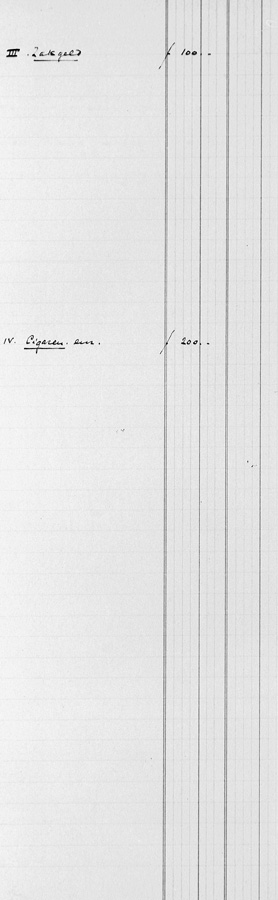 III. Zakgeld ƒ 100.-
IV. Cigaren. enz. ƒ 200.-